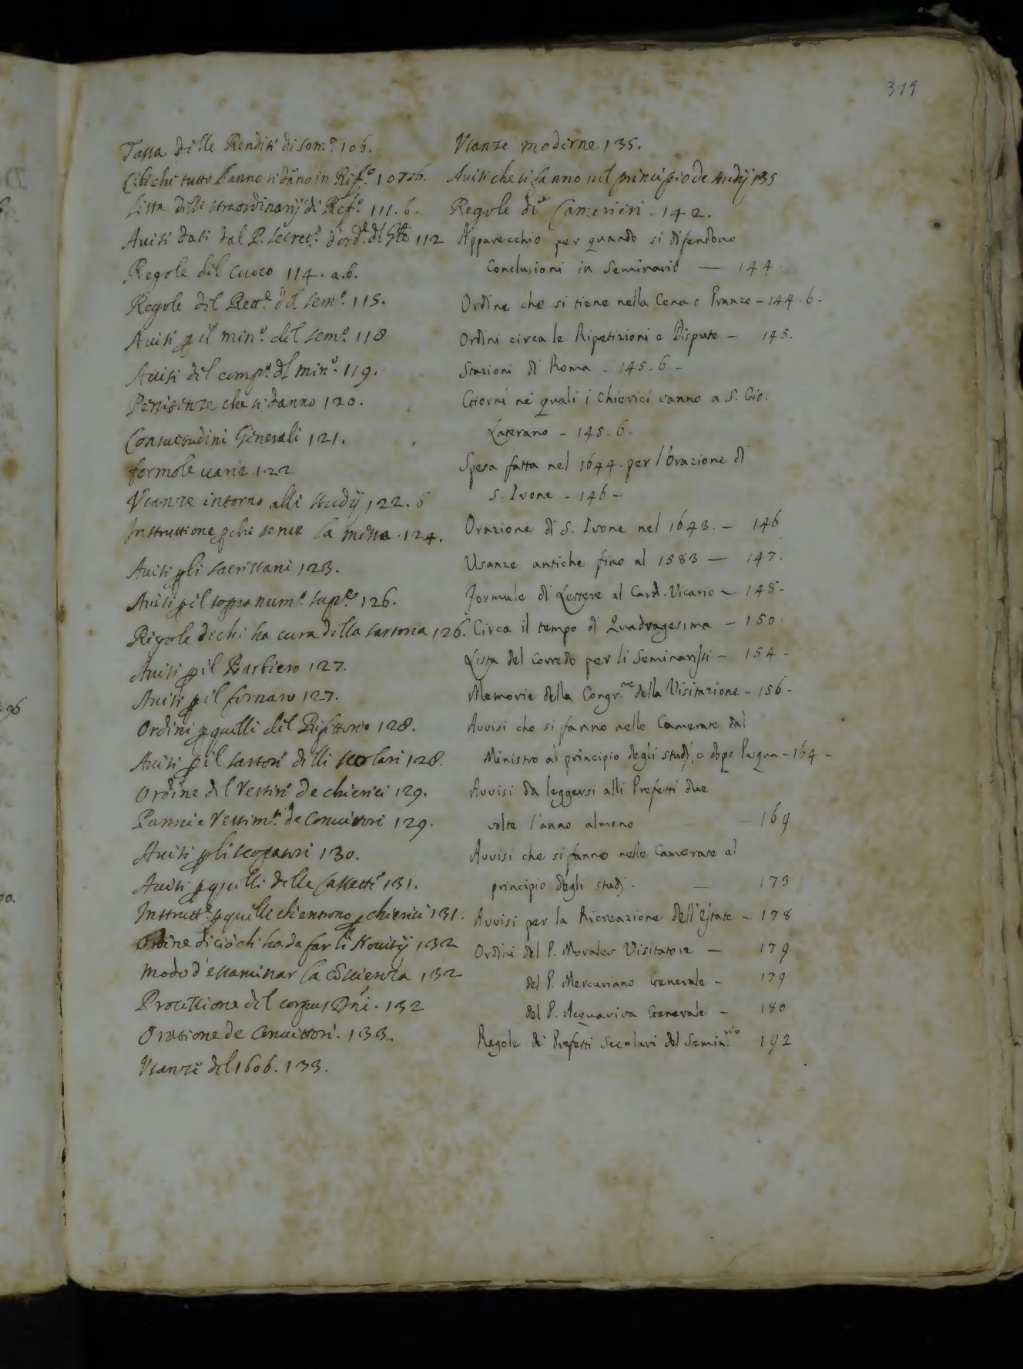 319
Tassa delle Renditi di som.e 106.
Cibi che tutto l'anno si dāno in Rif.o 107.b.
Lista delli straordinarij di Ref.o 111.b.
Avisi dati dal P. Secret.o d'ord.e del 112
Regole del Cuoco 114. a.b.
Regole del Rett.e del sem.o 115.
Avisi p il min.o del sem.o 118
Avisi del comp.o del min.o 119.
Penitenze che si danno 120.
Consuetudini Generali 121.
formole varie 122
Usanze intorno alli studij 122. b
Instruttione p chi serve la messa. 124.
Avisi p li sacristani 123.
Avisi p il sopranum.o sup.re 126.
Regole di chi ha cura della sartoria 126.
Avisi p il Barbiero 127.
Avisi p il fornaro 127.
Ordini p quelli del Refittorio 128.
Avisi p il sartori delli scolari 128.
Ordine del Vestire de chierici 129.
Panni e Vestim.ti de Convittori 129.
Avisi p li scopatori 130.
Avisi p quelli delle Cassette 131.
Instrutt.e p quelli ch'entrono p chierici 131.
Ordine di ciò ch'ha da far li Novitij 132
Modo d'essaminar la cōscienza 132
Processione del corpus Dñi. 132
Oratione de Convittori. 133.
Usanze del 1606. 133.
Usanze moderne 135.
Avisi che si fanno nel principio de studij 135
Regole de Camerieri. 142.
Apparecchio per quando si difendono
Conclusioni in Seminario — 144.
Ordine che si tiene nella Cena e Pranzo - 144.b.
Ordini circa le Ripetizioni e Dispute - 145.
Stazioni di Roma. 145.b -
Giorni ne' quali i Chierici vanno a S. Gio:
Laterano - 145.b.
Spesa fatta nel 1644. per l'Orazione di
S. Ivone - 146 -
Orazione di S. Ivone nel 1643. - 146
Usanze antiche fino al 1583 — 147.
Formule di Lettere al Card. Vicario - 148-
Circa il tempo di Quadragesima - 150.
Lista del Corredo per li Seminaristi - 154 -
Memorie della Congr.ne della Visitazione - 156 -
Avvisi che si fanno nelle Camerate dal
Ministro al principio degli studj, e dopo Pasqua - 164 -
Avvisi da leggersi alli Prefetti due
volte l'anno almeno — 169
Avvisi che si fanno nelle Camerate al
principio degli studj. — 173
Avvisi per la Ricreazione dell'Estate - 178
Ordini del P. Morales Visitatore — 179
del P. Mercuriano Generale - 179
del P. Acquaviva Generale - 180
Regole de' Prefetti Secolari del Semin.rio 192